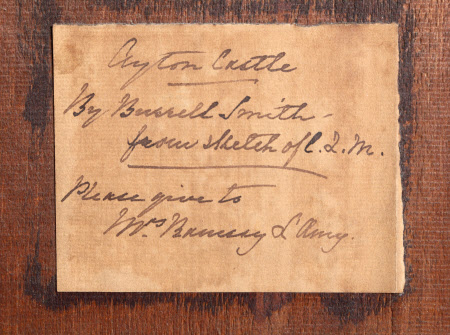 Ayton Castle
By Burrell Smith -
from sketch of C. L. M.
Please give to
Mrs Ramsay L'Amy.